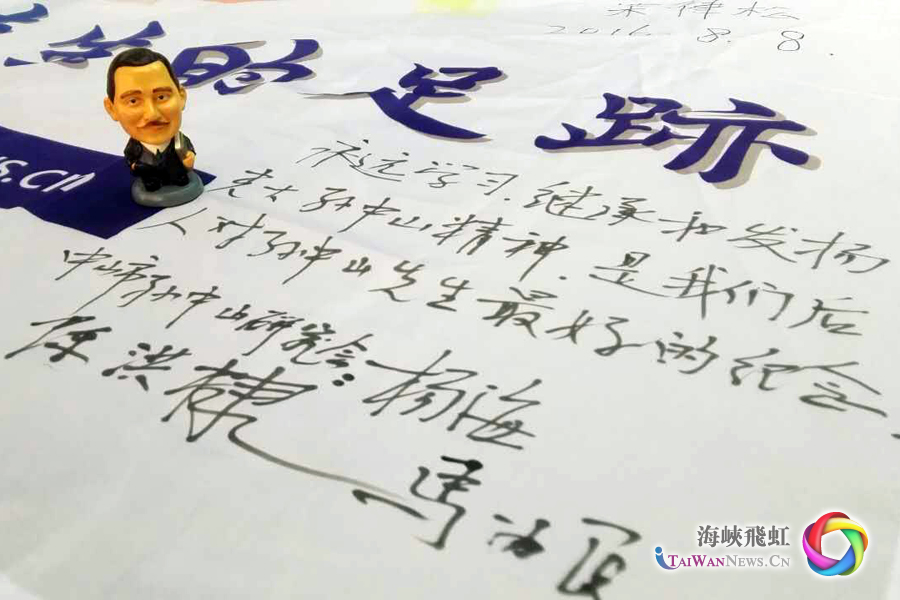 梁伟松
2016.8.8.
的足跡
s.cn
永远学习、继承和发扬
老大孙中山精神、是我们后
人对孙中山先生最好的纪念
中山市孙中山研究会:杨海
陈洪棣
海峽飛虹
TAIWANNEWS.CN